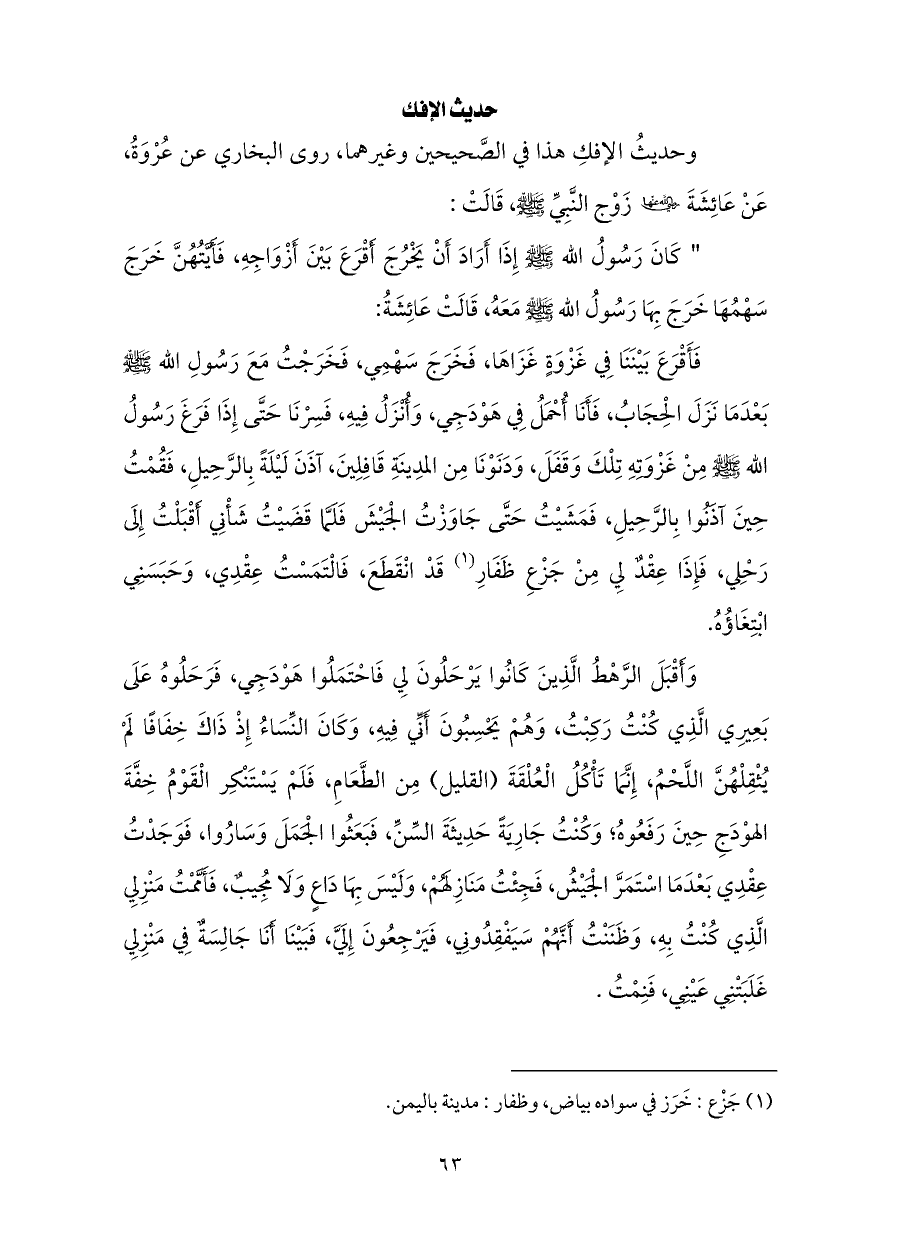 حديث الإفك
وحديثُ الإفكِ هذا في الصَّحيحين وغيرهما، روى البخاري عن عُرْوَةُ،
عَنْ عَائِشَةَ رضي الله عنها زَوْجِ النَّبِيِّ ﷺ، قَالَتْ :
" كَانَ رَسُولُ الله ﷺ إِذَا أَرَادَ أَنْ يَخْرُجَ أَقْرَعَ بَيْنَ أَزْوَاجِهِ، فَأَيَّتُهُنَّ خَرَجَ
سَهْمُهَا خَرَجَ بِهَا رَسُولُ الله ﷺ مَعَهُ، قَالَتْ عَائِشَةُ:
فَأَقْرَعَ بَيْنَنَا فِي غَزْوَةٍ غَزَاهَا، فَخَرَجَ سَهْمِي، فَخَرَجْتُ مَعَ رَسُولِ الله ﷺ
بَعْدَمَا نَزَلَ الْحِجَابُ، فَأَنَا أُحْمَلُ فِي هَوْدَجِي، وَأُنْزَلُ فِيهِ، فَسِرْنَا حَتَّى إِذَا فَرَغَ رَسُولُ
الله ﷺ مِنْ غَزْوَتِهِ تِلْكَ وَقَفَلَ، وَدَنَوْنَا مِن المدِينَةِ قَافِلِينَ، آذَنَ لَيْلَةً بِالرَّحِيلِ، فَقُمْتُ
حِينَ آذَنُوا بِالرَّحِيلِ، فَمَشَيْتُ حَتَّى جَاوَزْتُ الْجَيْشَ فَلَمَّا قَضَيْتُ شَأْنِي أَقْبَلْتُ إِلَى
رَحْلِي، فَإِذَا عِقْدٌ لِي مِنْ جَزْعِ ظَفَارِ(١) قَدْ انْقَطَعَ، فَالْتَمَسْتُ عِقْدِي، وَحَبَسَنِي
ابْتِغَاؤُهُ.
وَأَقْبَلَ الرَّهْطُ الَّذِينَ كَانُوا يَرْحَلُونَ لِي فَاحْتَمَلُوا هَوْدَجِي، فَرَحَلُوهُ عَلَى
بَعِيرِي الَّذِي كُنْتُ رَكِبْتُ، وَهُمْ يَحْسِبُونَ أَنِّي فِيهِ، وَكَانَ النِّسَاءُ إِذْ ذَاكَ خِفَافًا لَمْ
يُثْقِلْهُنَّ اللَّحْمُ، إِنَّمَا تَأْكُلُ الْعُلْقَةَ (القليل) مِن الطَّعَامِ، فَلَمْ يَسْتَنْكِر الْقَوْمُ خِفَّةَ
الهوْدَجِ حِينَ رَفَعُوهُ؛ وَكُنْتُ جَارِيَةً حَدِيثَةَ السِّنِّ، فَبَعَثُوا الْجَمَلَ وَسَارُوا، فَوَجَدْتُ
عِقْدِي بَعْدَمَا اسْتَمَرَّ الْجَيْشُ، فَجِئْتُ مَنَازِلَهُمْ، وَلَيْسَ بِهَا دَاعٍ وَلَا مُجِيبٌ، فَأَمَّمْتُ مَنْزِلِي
الَّذِي كُنْتُ بِهِ، وَظَنَنْتُ أَنَّهُمْ سَيَفْقِدُونِي، فَيَرْجِعُونَ إِلَيَّ، فَبَيْنَا أَنَا جَالِسَةٌ فِي مَنْزِلِي
غَلَبَتْنِي عَيْنِي، فَنِمْتُ .
(١) جَزْع : خَرَز في سواده بياض، وظفار : مدينة باليمن.
٦٣